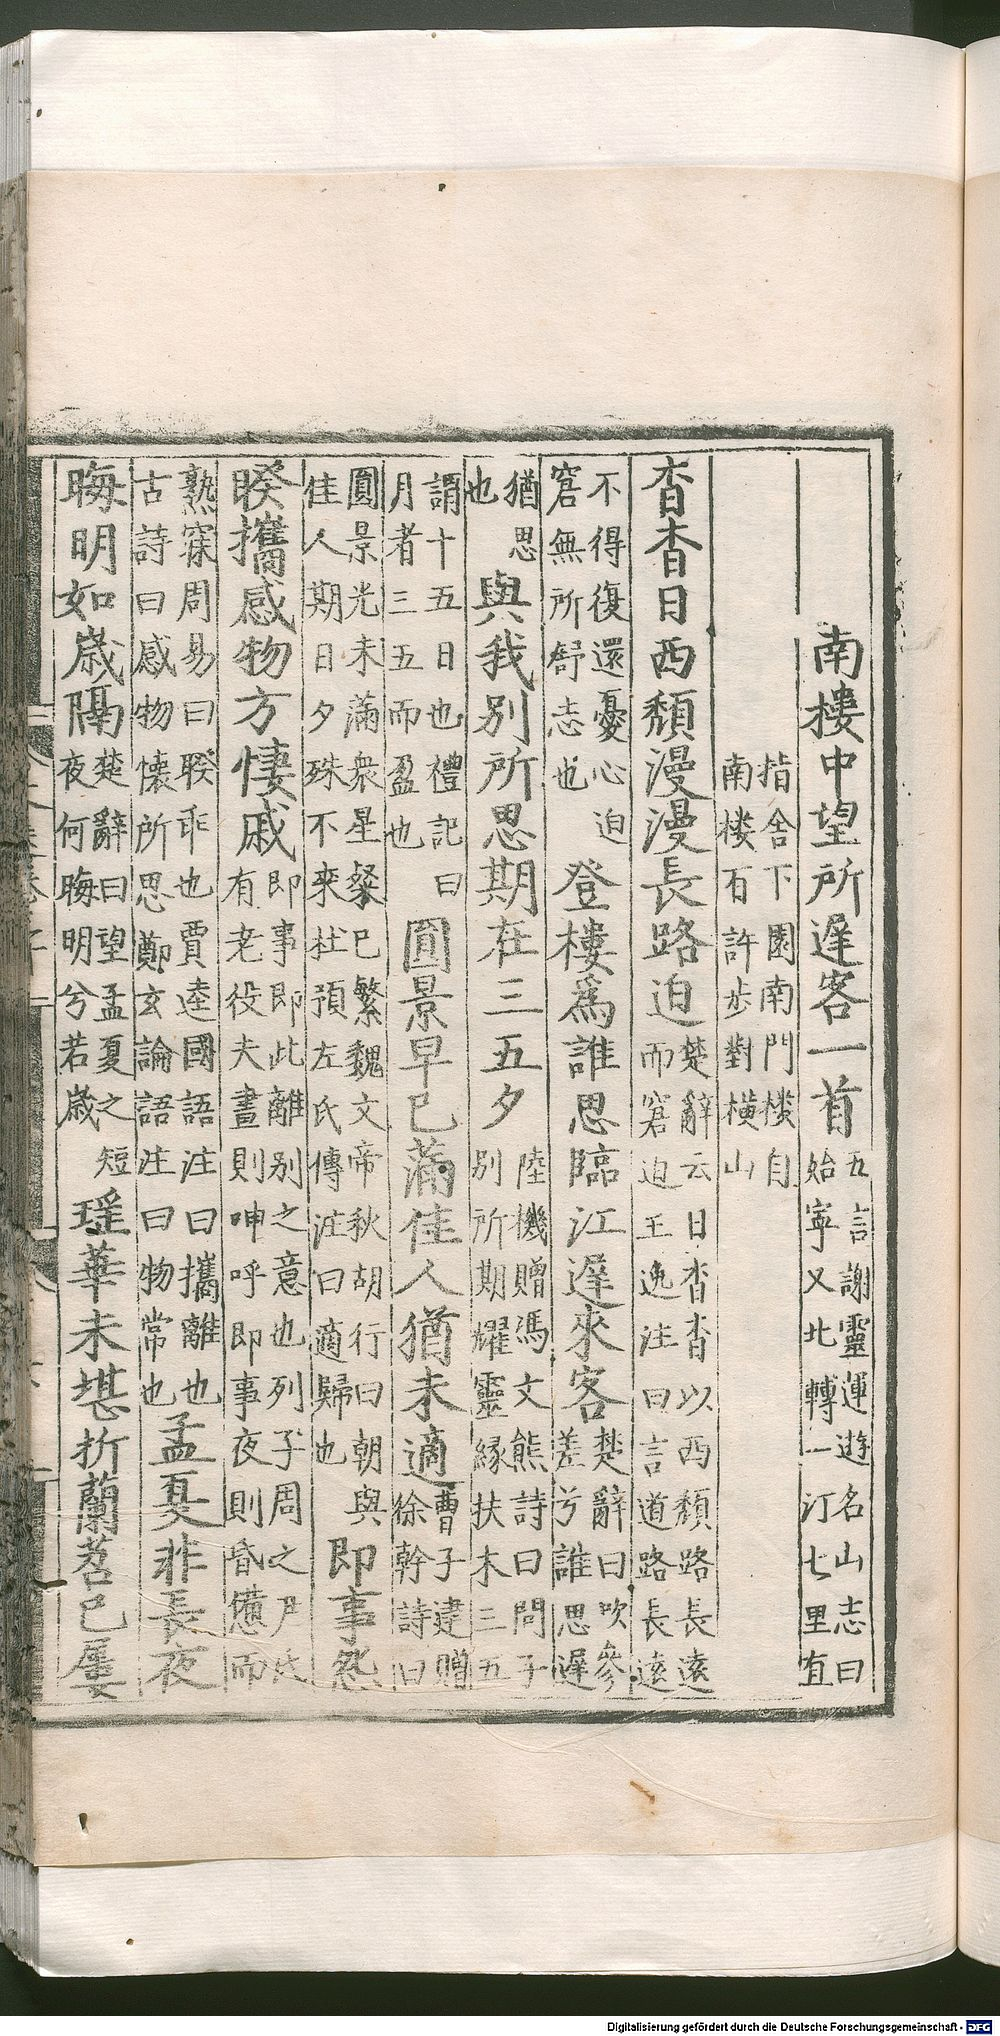 南樓中望所遲客一首五言謝靈運遊名山志曰始寧又北轉一汀七里直
指舍下園南門楼自南楼百許步對橫山
杳杳日西頹漫漫長路迫楚辭云日杳杳以西頹路長遠而窘迫王逸注曰言道路長遠
不得復還憂心迫窘無所舒志也登樓爲誰思臨江遲來客楚辭曰吹參差兮誰思遲
猶思也與我別所思期在三五夕陸機贈馮文熊詩曰問子別所期耀靈緣扶木三五
謂十五日也禮記曰月者三五而盈也圓景早已滿佳人猶未適曹子建贈徐幹詩曰
圓景光未滿衆星粲已繁魏文帝秋胡行曰朝與佳人期日夕殊不來杜預左氏傳注曰適歸也即事怨
睽攜感物方悽戚即事即此離別之意也列子周之尹氏有老役夫晝則呻呼即事夜則昏憊而
熟寐周易曰睽乖也賈逵國語注曰攜離也古詩曰感物懷所思鄭玄論語注曰物常也孟夏非長夜
晦明如歲隔楚辭曰望孟夏之短夜何晦明兮若歲瑤華未堪折蘭苕已屢
Digitalisierung gefördert durch die Deutsche Forschungsgemeinschaft - DFG